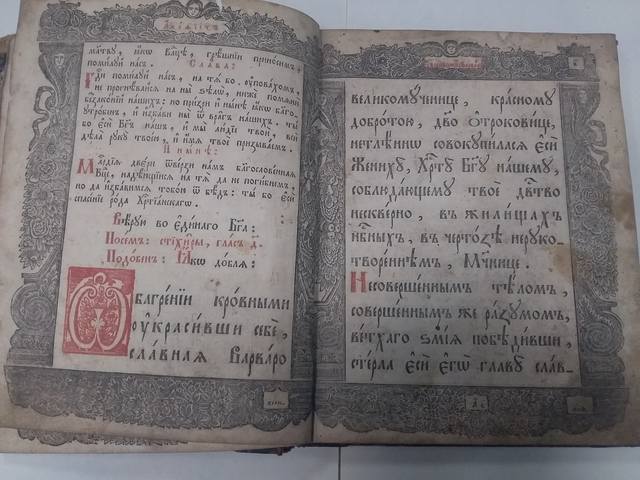 мл҃тву, ꙗ҆́кѡ влⷣцѣ, грѣ́шнїи прино́симъ,
поми́лꙋй на́съ. Сла́ва:
Гдⷭ҇и поми́лꙋй на́съ, на тѧ́ бо ᲂу҆пова́хомъ,
не прогнѣ́вайсѧ на ны̀ ѕѣлѡ̀, нижѐ помѧнѝ
беззако́нїй на́шихъ: но при́зри и҆ ны́нѣ ꙗ҆́кѡ бл҃го-
ᲂу҆тро́бенъ, и҆ и҆зба́ви ны̀ ѿ вра̑гъ на́шихъ. ты́
бо є҆сѝ бг҃ъ на́шъ, и҆ мы̀ лю́дїе твоѝ, всѝ
дѣла̀ рꙋкꙋ̀ твоє́ю, и҆ и҆́мѧ твоѐ призыва́емъ.
И҆ ны́нѣ:
Милосе́рдїѧ две́ри ѿве́рзи на́мъ бл҃гослове́ннаѧ
бц҃е, надѣ́ющїисѧ на тѧ̀ да не поги́бнемъ,
но да и҆зба́вимсѧ тобо́ю ѿ бѣ́дъ: ты́ бо є҆сѝ
спасе́нїе ро́да хрⷭ҇тїа́нскагѡ.
Вѣ́рꙋю во є҆ди́наго бг҃а:
Посе́мъ: стїхи̑ры, гла́съ д҃.
Подо́бенъ: Ꙗ҆́кѡ до́блѧ:
Багре́нїи кро́вными
ᲂу҆краси́вши себѐ,
сла́внаѧ Варва́ро
великомч҃нице, кра́сномꙋ
добро́тою, дв҃о ѻ҆трокови́це,
нетлѣ́ннѡ совокꙋпи́ласѧ є҆сѝ
Женихꙋ̀, Хрⷭ҇тꙋ̀ Бг҃ꙋ на́шемꙋ,
соблюда́ющемꙋ твоѐ дв҃ство
нескве́рно, въ жили́щахъ
нбⷭ҇ныхъ, въ черто́зѣ нерꙋко-
творе́ннѣмъ, Мч҃нице.
Несоверше́ннымъ тѣ́ломъ,
соверше́ннымъ же ра́зꙋмомъ,
ве́тхаго ѕмі́ѧ побѣди́вши,
сте́рла є҆сѝ є҆гѡ̀ главꙋ̀ сла́в-